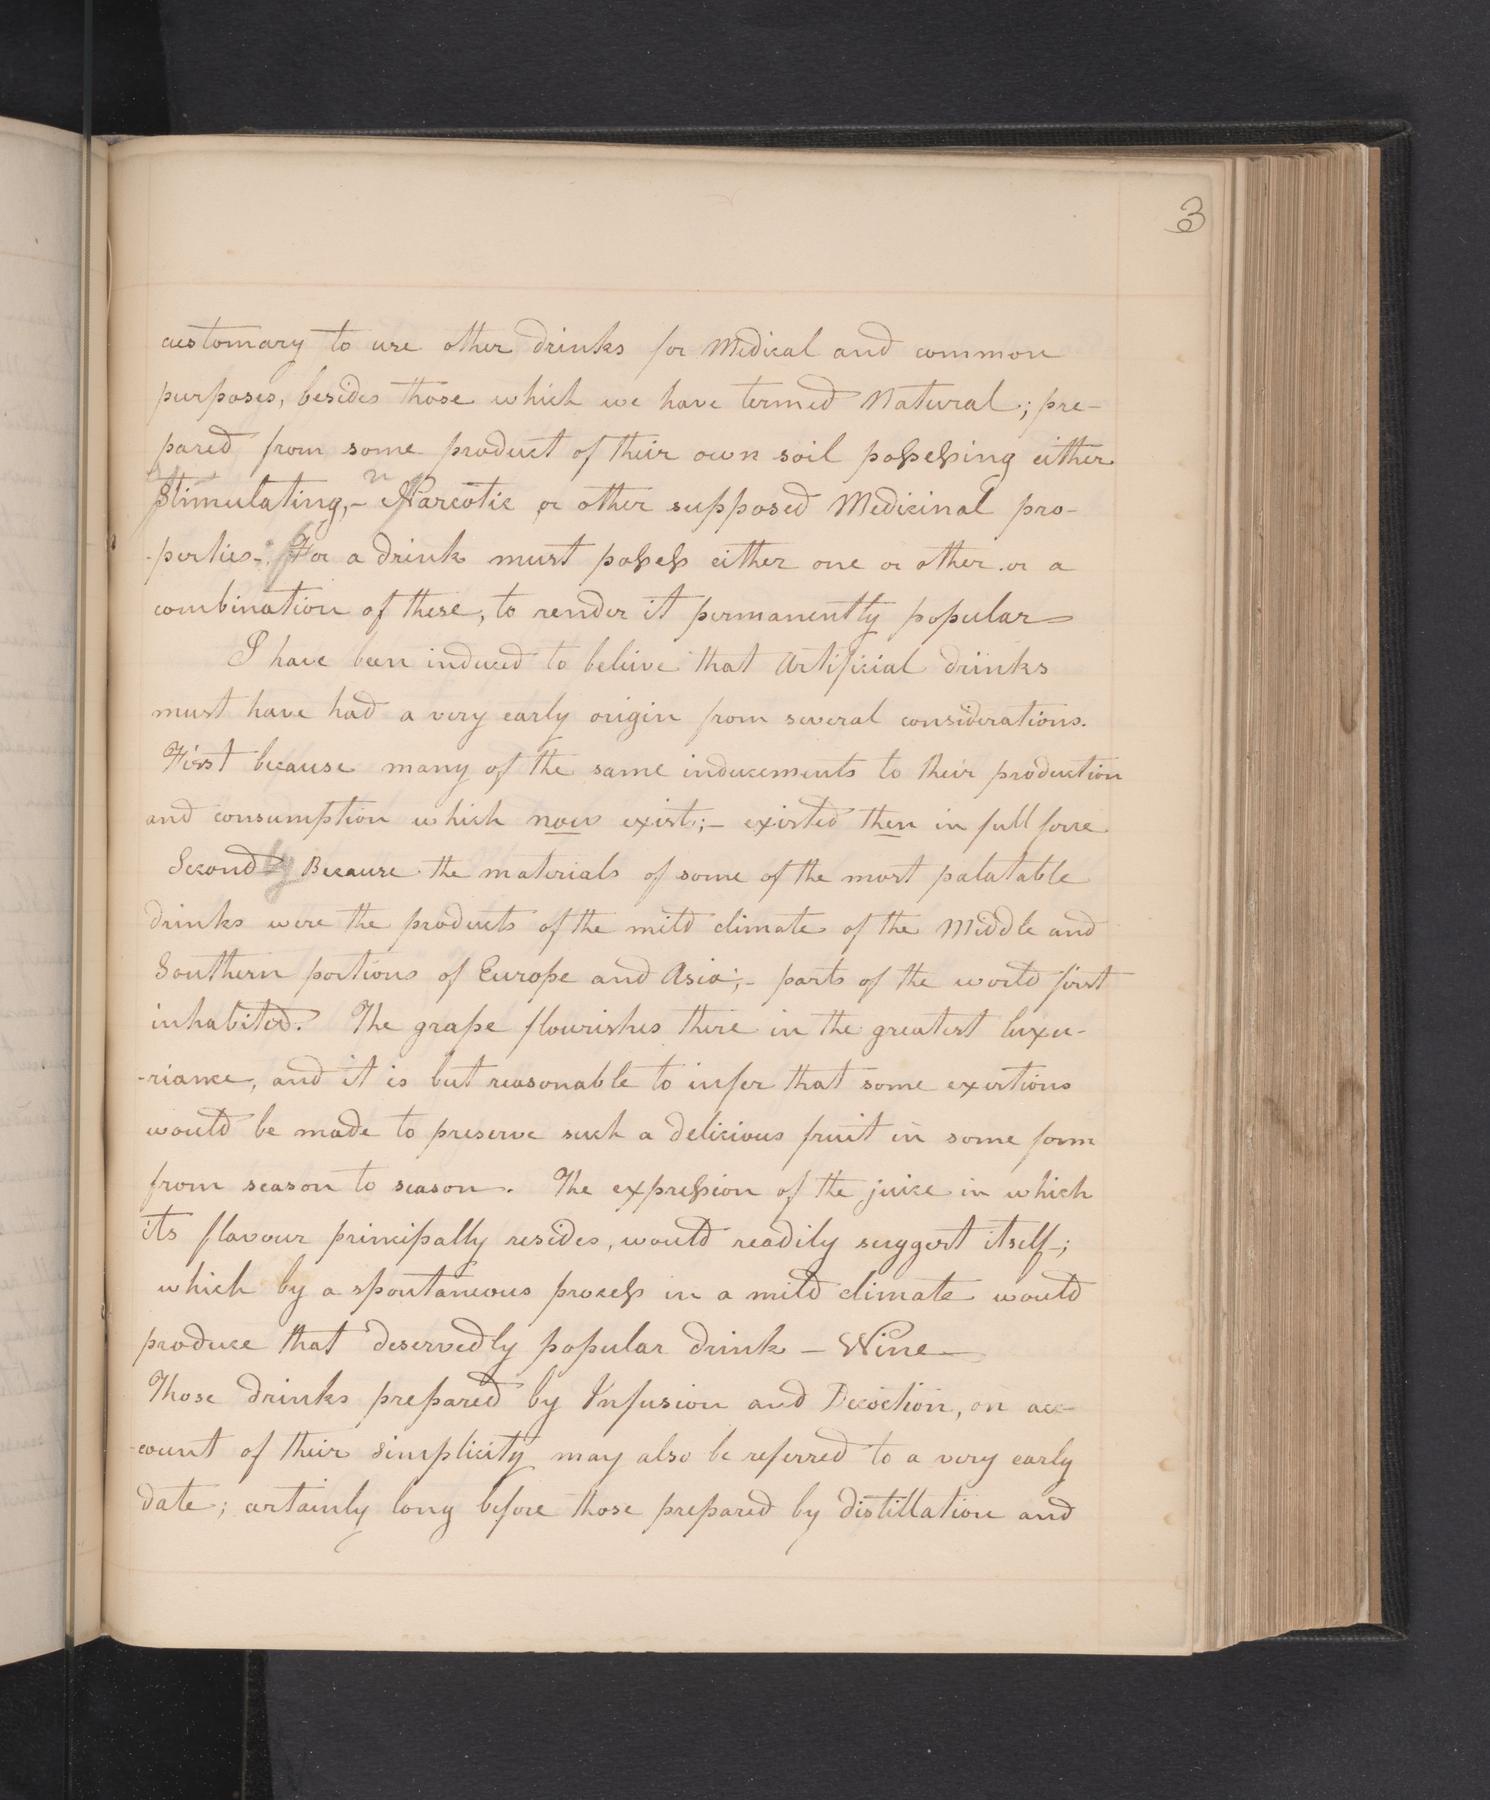 3
customary to use other drinks for Medical and common
purposes, besides those which we have termed Natural; pre-
pared from some product of their own soil possessing either
Stimulating,- Narcotic or other supposed Medicinal pro-
-perties-. For a drink must possess either one or other or a
combination of these, to render it permanently popular
I have been induced to believe that Artificial drinks
must have had a very early origin from several considerations.
First because many of the same inducements to their production
and consumption which now exist;- existed then in full force
Secondly Because the materials of some of the most palatable
drinks were the products of the mild climate of the Middle and
Southern portions of Europe and Asia;- parts of the world first
inhabited. The grape flourishes there in the greatest luxu-
-riance, and it is but reasonable to infer that some exertions
would be made to preserve such a delicious fruit in some form
from season to season. The expression of the juice in which
its flavour principally resides, would readily suggest itself-;
which by a spontaneous process in a mild climate would
produce that deservedly popular drink - Wine-
Those drinks prepared by Infusion and Decoction, on acc-
-ount of their simplicity may also be referred to a very early
date; certainly long before those prepared by distillation and